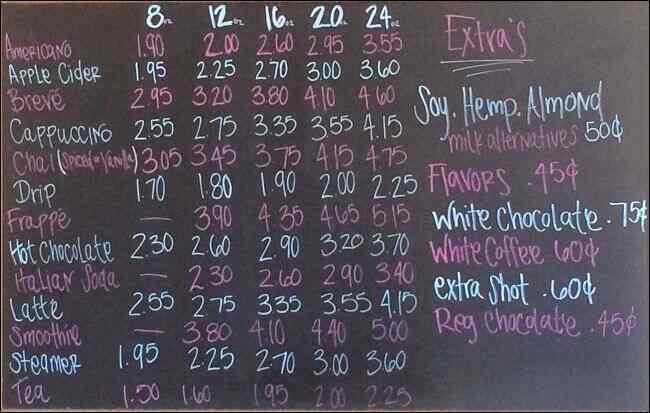 8oz 12oz 16oz 20oz 24oz
Americano 1.90 2.00 2.60 2.95 3.55
Apple Cider 1.95 2.25 2.70 3.00 3.60
Breve 2.95 3.20 3.80 4.10 4.60
Cappuccino 2.55 2.75 3.35 3.55 4.15
Chai (Spiced or Vanilla) 3.05 3.45 3.75 4.15 4.75
Drip 1.70 1.80 1.90 2.00 2.25
Frappe — 3.90 4.35 4.65 5.15
Hot Chocolate 2.30 2.60 2.90 3.20 3.70
Italian Soda — 2.30 2.60 2.90 3.40
Latte 2.55 2.75 3.35 3.55 4.15
Smoothie — 3.80 4.10 4.40 5.00
Steamer 1.95 2.25 2.70 3.00 3.60
Tea 1.50 1.60 1.95 2.00 2.25
Extra's
Soy. Hemp. Almond
milk alternatives 50¢
Flavors .45¢
White Chocolate .75¢
White Coffee 60¢
extra shot .60¢
Reg Chocolate .45¢